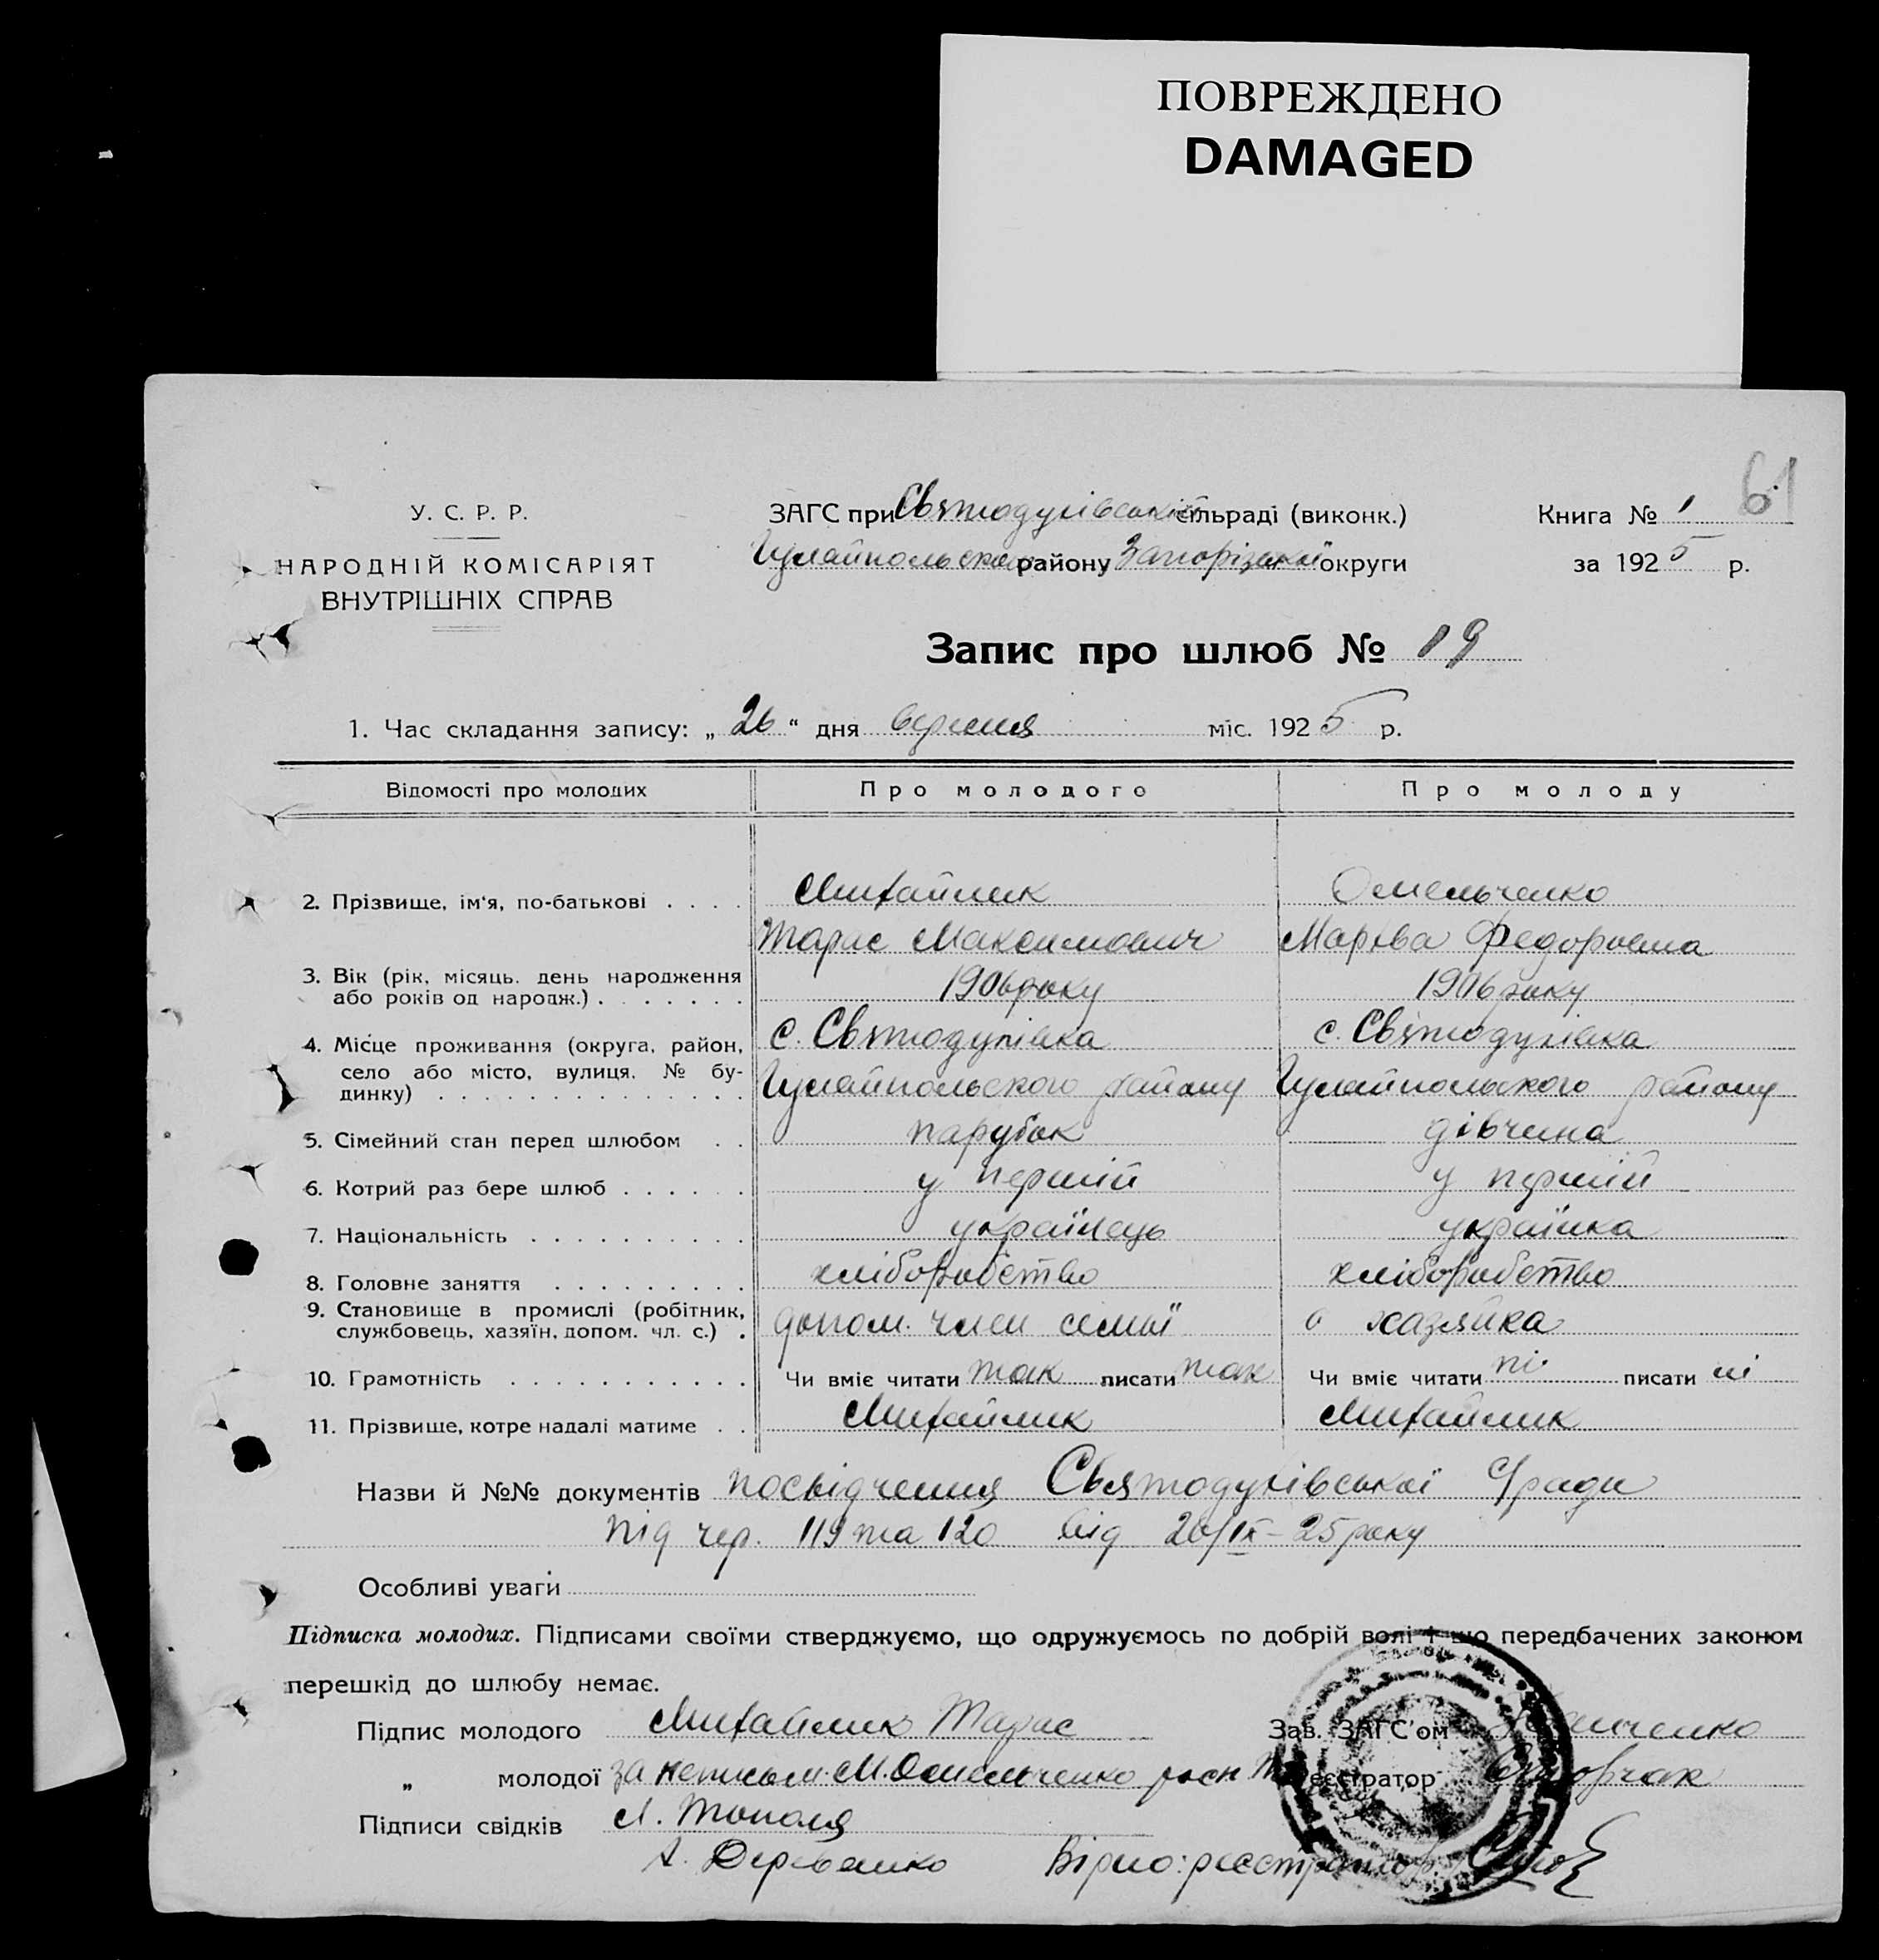 ПОВРЕЖДЕНО
DAMAGED
61
У. С. Р. Р.
НАРОДНІЙ КОМІСАРІЯТ
ВНУТРІШНІХ СПРАВ
ЗАГС при Святодухівській сільраді (виконк.)
Гуляйпольского району Запорізької округи
Книга № 1
за 1925 р.
Запис про шлюб № 19
1. Час складання запису: „ 26 “ дня вересня міс. 1925 р.
Відомості про молодих Про молодого Про молоду
2. Прізвище, ім‘я, по-батькові . . . . Михайлик Омельченко
Тарас Максимович Федоровна
3. Вік (рік, місяць. день народження
або років од народж.) . . . . . . . 1906 року 1906 року
4. Місце проживання (округа, район, с. Святодухівка с. Святодухівка
село або місто, вулиця. № бу-
динку) . . . . . . . . . . . . . . Гуляйпольского району Гуляйпольского району
5. Сімейний стан перед шлюбом . . парубок дівчина
6. Котрий раз бере шлюб . . . . . . у першій у першій
7. Національність . . . . . . . . . . українець українка
8. Головне заняття . . . . . . . . . хліборобство хліборобство
9. Становище в промислі (робітник,
службовець, хазяїн, допом. чл. с.) . допом. член семьї хазяйка
10. Грамотність . . . . . . . . . . . Чи вміє читати так писати так Чи вміє читати ні писати ні
11. Прізвище, котре надалі матиме . . Михайлик Михайлик
Назви й №№ документів посвідчення Святодухівської С/ради
під чер. 119 та 120 від 26/IX-25 року
Особливі уваги
Підписка молодих. Підписами своїми стверджуємо, що одружуємось по добрій волі і що передбачених законом
перешкід до шлюбу немає.
Підпис молодого Михайлик Тарас Зав. ЗАГС'ом
„ молодої за неписьм. М. Омельченко Реєстратор
Підписи свідків Л. Тополя
А. Деревянко Вірно: реєстратор